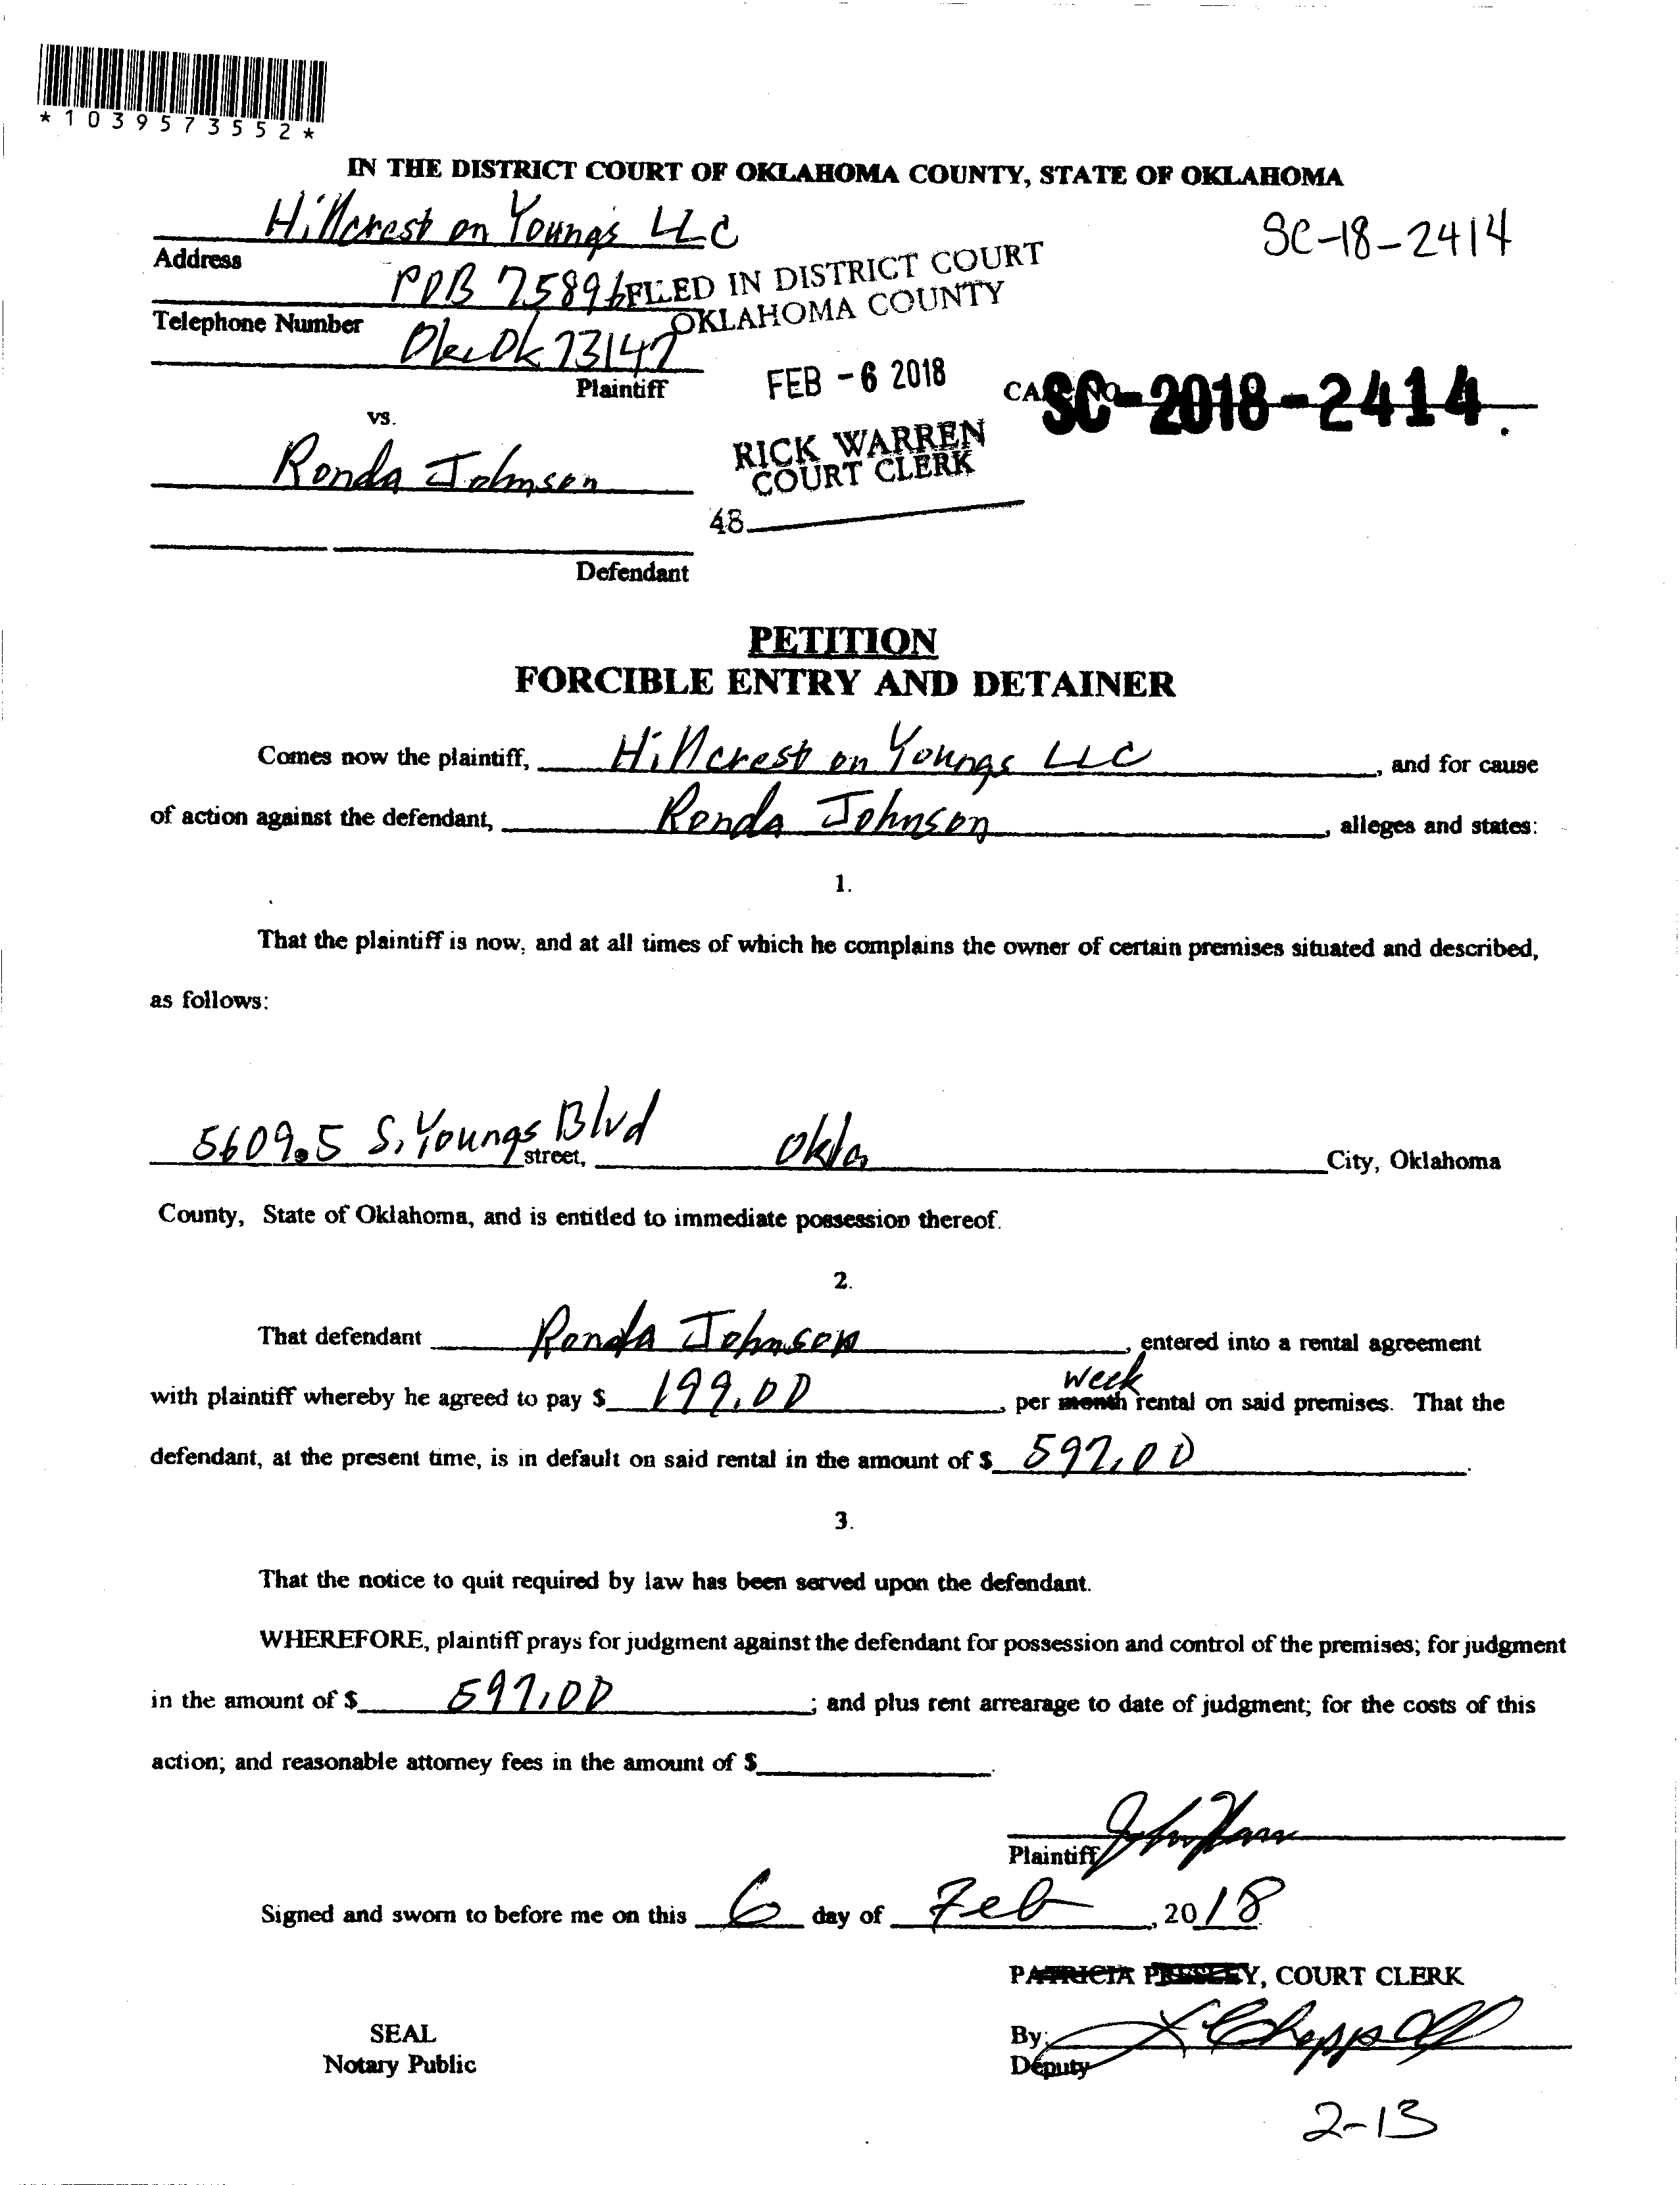 *1039573552*
IN THE DISTRICT COURT OF OKLAHOMA COUNTY, STATE OF OKLAHOMA
Hillcrest on Youngs LLC
SC-18-2414
Address
POB 75896
FILED IN DISTRICT COURT
OKLAHOMA COUNTY
Telephone Number
Okc Ok 73147
Plaintiff
FEB -6 2018
CASE NO. SC-2018-2414
vs.
RICK WARREN
COURT CLERK
Ronda Johnson
48
Defendant
PETITION
FORCIBLE ENTRY AND DETAINER
Comes now the plaintiff, Hillcrest on Youngs LLC, and for cause
of action against the defendant, Ronda Johnson, alleges and states:
1.
That the plaintiff is now, and at all times of which he complains the owner of certain premises situated and described,
as follows:
5609.5 S. Youngs Blvd street, Okla City, Oklahoma
County, State of Oklahoma, and is entitled to immediate possession thereof.
2.
That defendant Ronda Johnson, entered into a rental agreement
week
with plaintiff whereby he agreed to pay $ 199.00, per month rental on said premises. That the
defendant, at the present time, is in default on said rental in the amount of $ 597.00.
3.
That the notice to quit required by law has been served upon the defendant.
WHEREFORE, plaintiff prays for judgment against the defendant for possession and control of the premises; for judgment
in the amount of $ 597.00; and plus rent arrearage to date of judgment; for the costs of this
action; and reasonable attorney fees in the amount of $ .
Plaintiff
Signed and sworn to before me on this 6 day of Feb, 2018
PATRICIA PRESLEY, COURT CLERK
SEAL
By: Chappell
Notary Public
Deputy
2-13